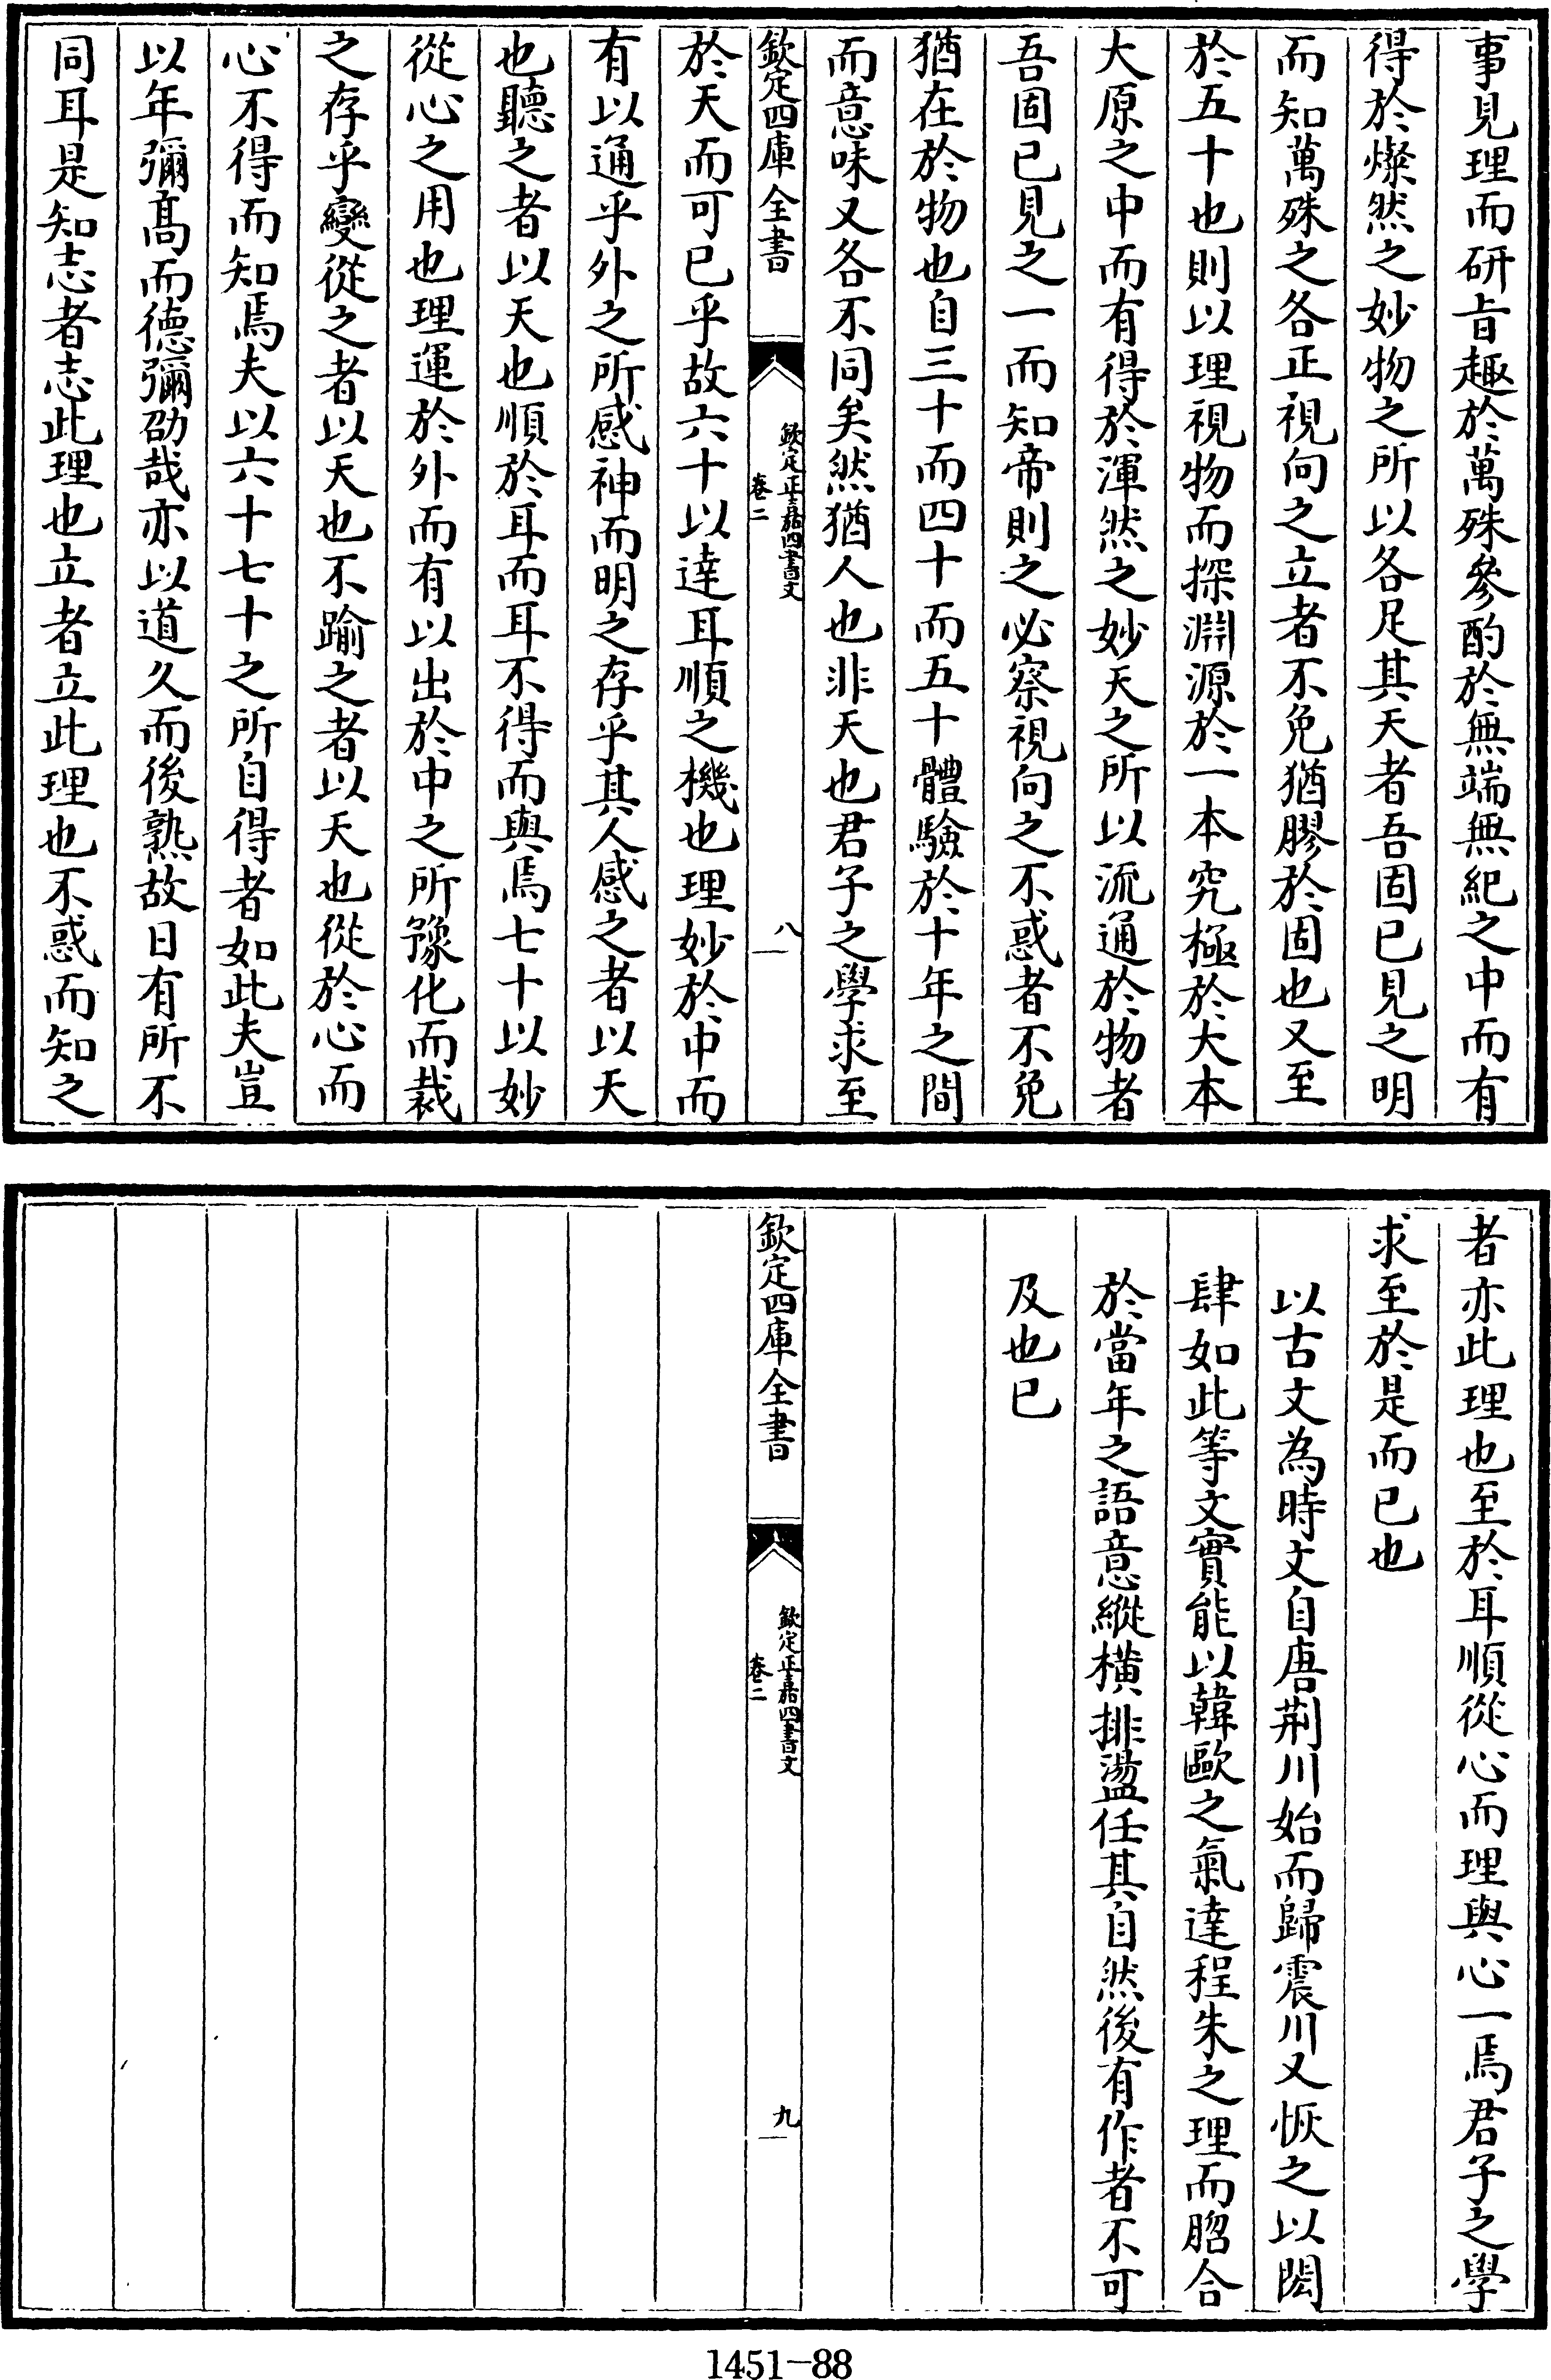 事見理而研旨趣於萬殊參酌於無端無紀之中而有
得於燦然之妙物之所以各足其天者吾固已見之明
而知萬殊之各正視向之立者不免猶膠於固也又至
於五十也則以理視物而探淵源於一本究極於大本
大原之中而有得於渾然之妙天之所以流通於物者
吾固已見之一而知帝則之必察視向之不惑者不免
猶在於物也自三十而四十而五十體驗於十年之間
而意味又各不同矣然猶人也非天也君子之學求至
欽定四庫全書
欽定正嘉四書文
卷二
八
於天而可已乎故六十以達耳順之機也理妙於中而
有以通乎外之所感神而明之存乎其人感之者以天
也聽之者以天也順於耳而耳不得而與焉七十以妙
從心之用也理運於外而有以出於中之所豫化而裁
之存乎變從之者以天也不踰之者以天也從於心而
心不得而知焉夫以六十七十之所自得者如此夫豈
以年彌髙而德彌劭哉亦以道久而後熟故日有所不
同耳是知志者志此理也立者立此理也不惑而知之
者亦此理也至於耳順從心而理與心一焉君子之學
求至於是而已也
以古文為時文自唐荆川始而歸震川又恢之以閎
肆如此等文實能以韓歐之氣達程朱之理而脗合
於當年之語意縱橫排盪任其自然後有作者不可
及也已
欽定四庫全書
欽定正嘉四書文
卷二
九
1451-88